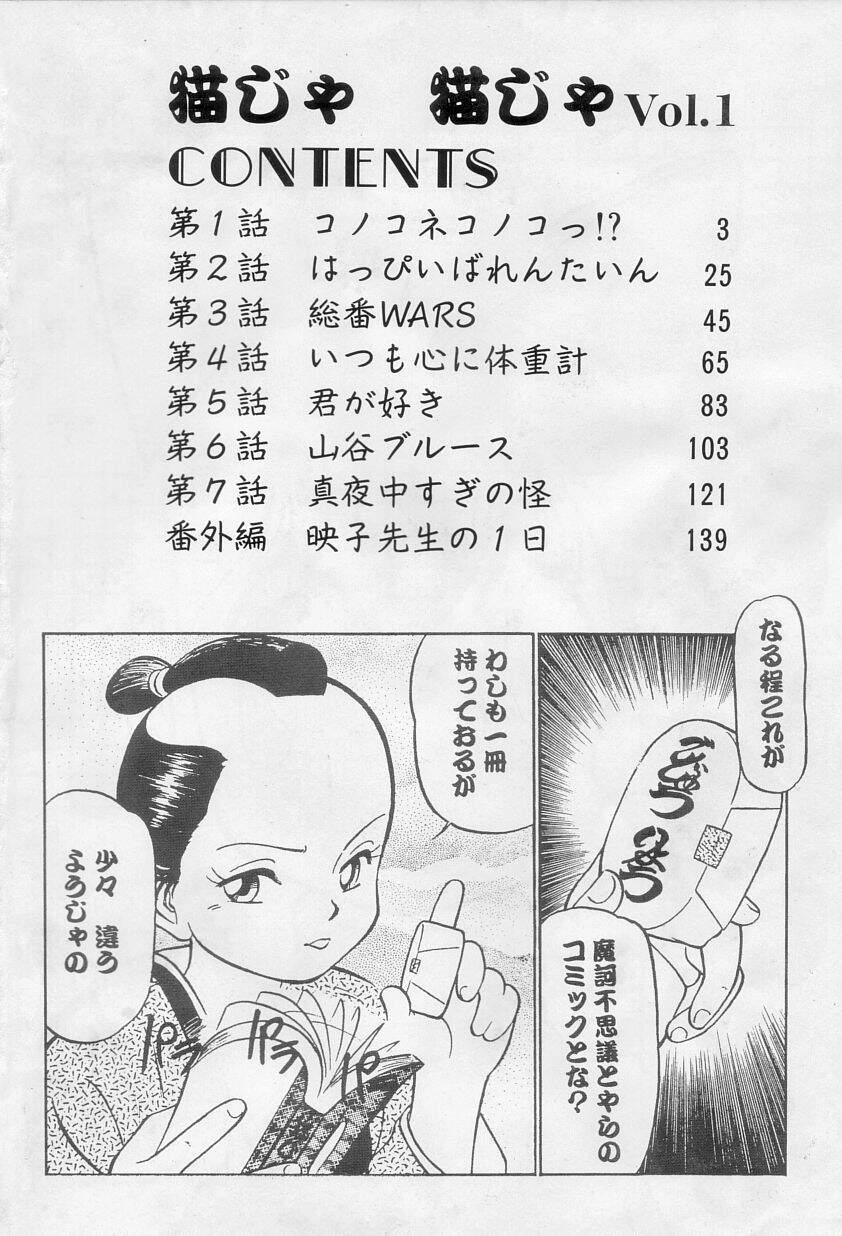 猫じゃ　猫じゃ Vol.1
CONTENTS
第1話　コノコネコノコっ!?　3
第2話　はっぴいばれんたいん　25
第3話　総番WARS　45
第4話　いつも心に体重計　65
第5話　君が好き　83
第6話　山谷ブルース　103
第7話　真夜中すぎの怪　121
番外編　映子先生の1日　139
なる程これが
魔訶不思議とやらの
コミックとな?
わしも一冊
持っておるが
少々 違う
ようじゃの
パラ
パラ
パ